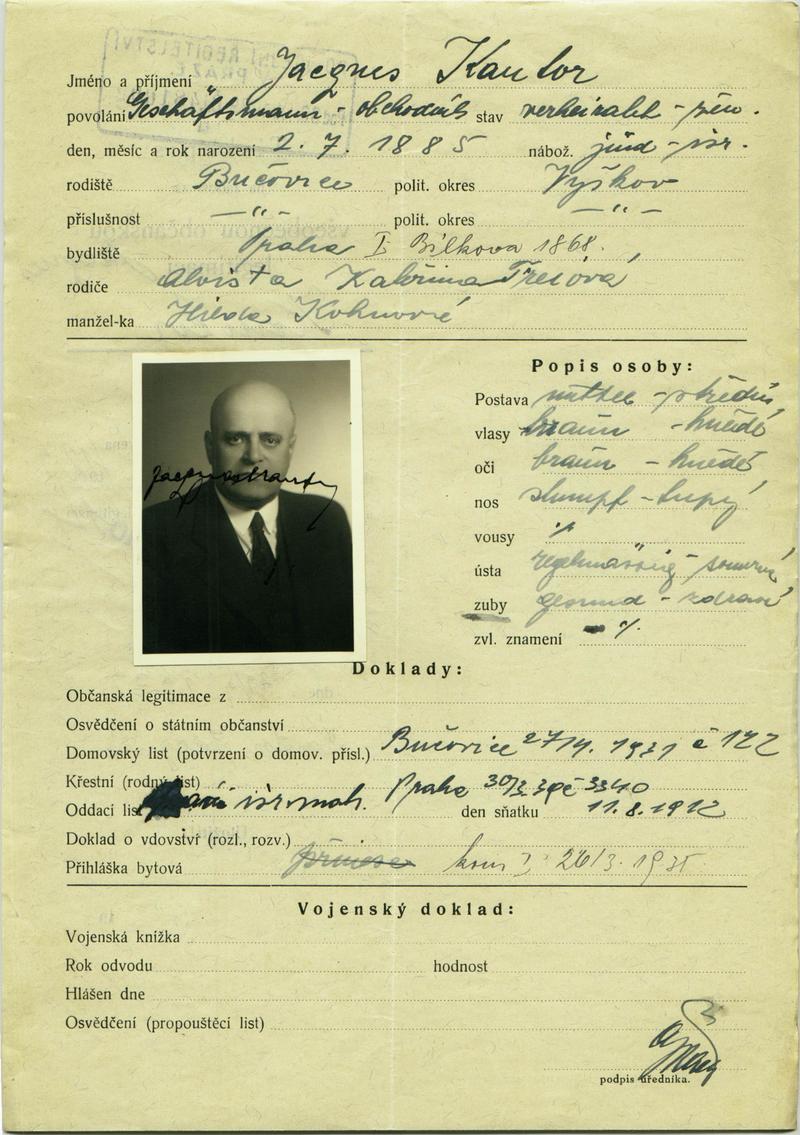 Jméno a příjmení Jacques Kantor
povolání Geschäftsmann - obchodník stav verheiratet - žen.
den, měsíc a rok narození 2. 7. 1885 nábož. jüd - isr.
rodiště Bučovice polit. okres Vyškov
příslušnost -"- polit. okres -"-
bydliště Praha I Bílkova 1868.
rodiče Aloista Kateřina
manžel-ka Hilda Kohnová
Popis osoby:
Postava mittel - střední
vlasy braun - hnědé
oči braun - hnědé
nos stumpf - tupý
vousy %
ústa regelmässig - souměrná
zuby gesund - zdravé
zvl. znamení - %
Jacques Kantor
Doklady:
Občanská legitimace z
Osvědčení o státním občanství
Domovský list (potvrzení o domov. přísl.) Bučovice 27/4. 1931 č 122
Křestní (rodný list)
Oddací list isr. mat. Praha 30/3 39 č 3340 den sňatku 11. 8. 1912
Doklad o vdovství (rozl., rozv.)
Přihláška bytová kom I 26/3. 1935
Vojenský doklad:
Vojenská knížka
Rok odvodu hodnost
Hlášen dne
Osvědčení (propouštěcí list)
podpis úředníka.